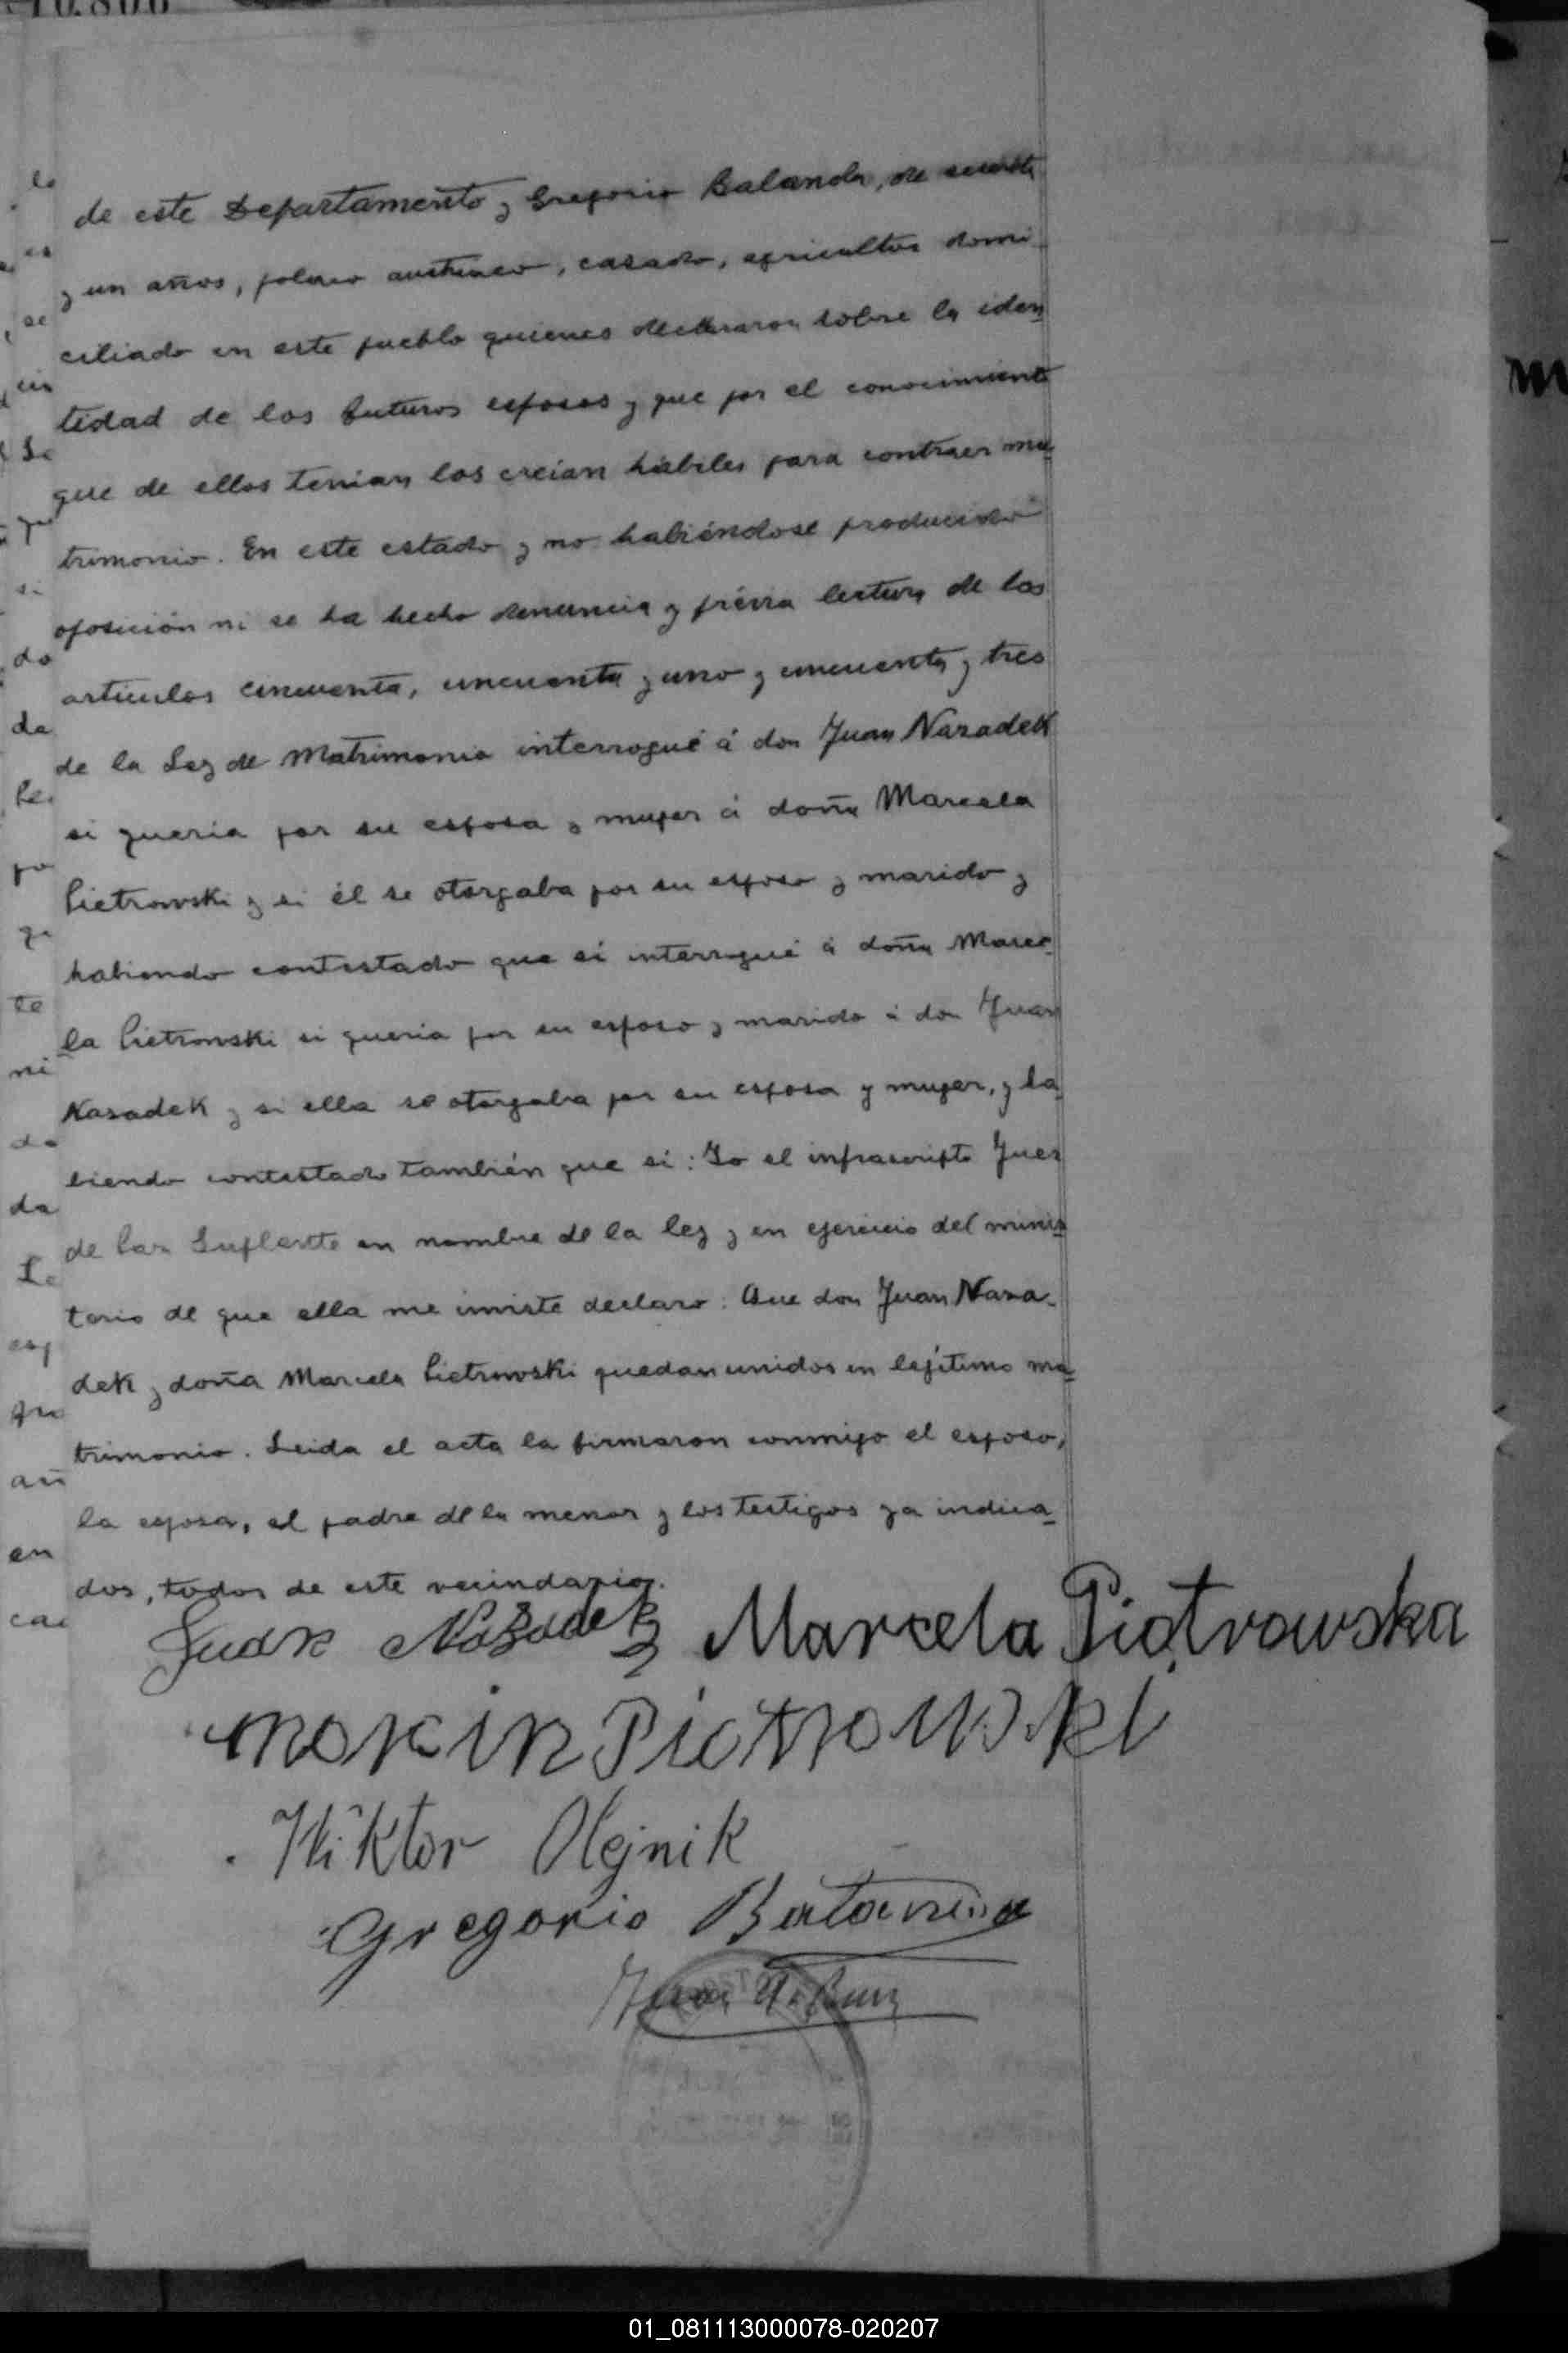 de este Departamento y Gregorio Balanda, de
y un años, polaco austriaco, casado, agricultor domi-
ciliado en este pueblo quienes declararon sobre la iden
tidad de los futuros esposos y que por el conocimiento
que de ellos tenian los creian hábiles para contraer ma
trimonio. En este estado y no habiéndose producido
oposición ni se ha hecho denuncia y prévia lectura de los
artículos cincuenta, cincuenta y uno y cincuenta y tres
de la Ley de Matrimonio interrogué á don Juan Nazadek
si queria por su esposa y mujer á doña Marcela
Pietrowski y si él se otorgaba por su esposo y marido y
habiendo contestado que sí interrogué á doña Marce
la Pietrowski si queria por su esposo y marido á don Juan
Nazadek y si ella se otorgaba por su esposa y mujer, y ha
biendo contestado también que sí: Yo el infrascripto Juez
de Paz Suplente en nombre de la ley y en ejercicio del minis
terio de que ella me inviste declaro: Que don Juan Naza-
dek y doña Marcela Pietrowski quedan unidos en lejítimo ma
trimonio. Leida el acta la firmaron conmigo el esposo,
la esposa, el padre de la menor y los testigos ya indica
dos, todos de este vecindario.
Juan Nazadek Marcela Piotrowska
Marcin Piotrowski
Wiktor Olejnik
Gregorio Batanda
Juan
01_081113000078-020207